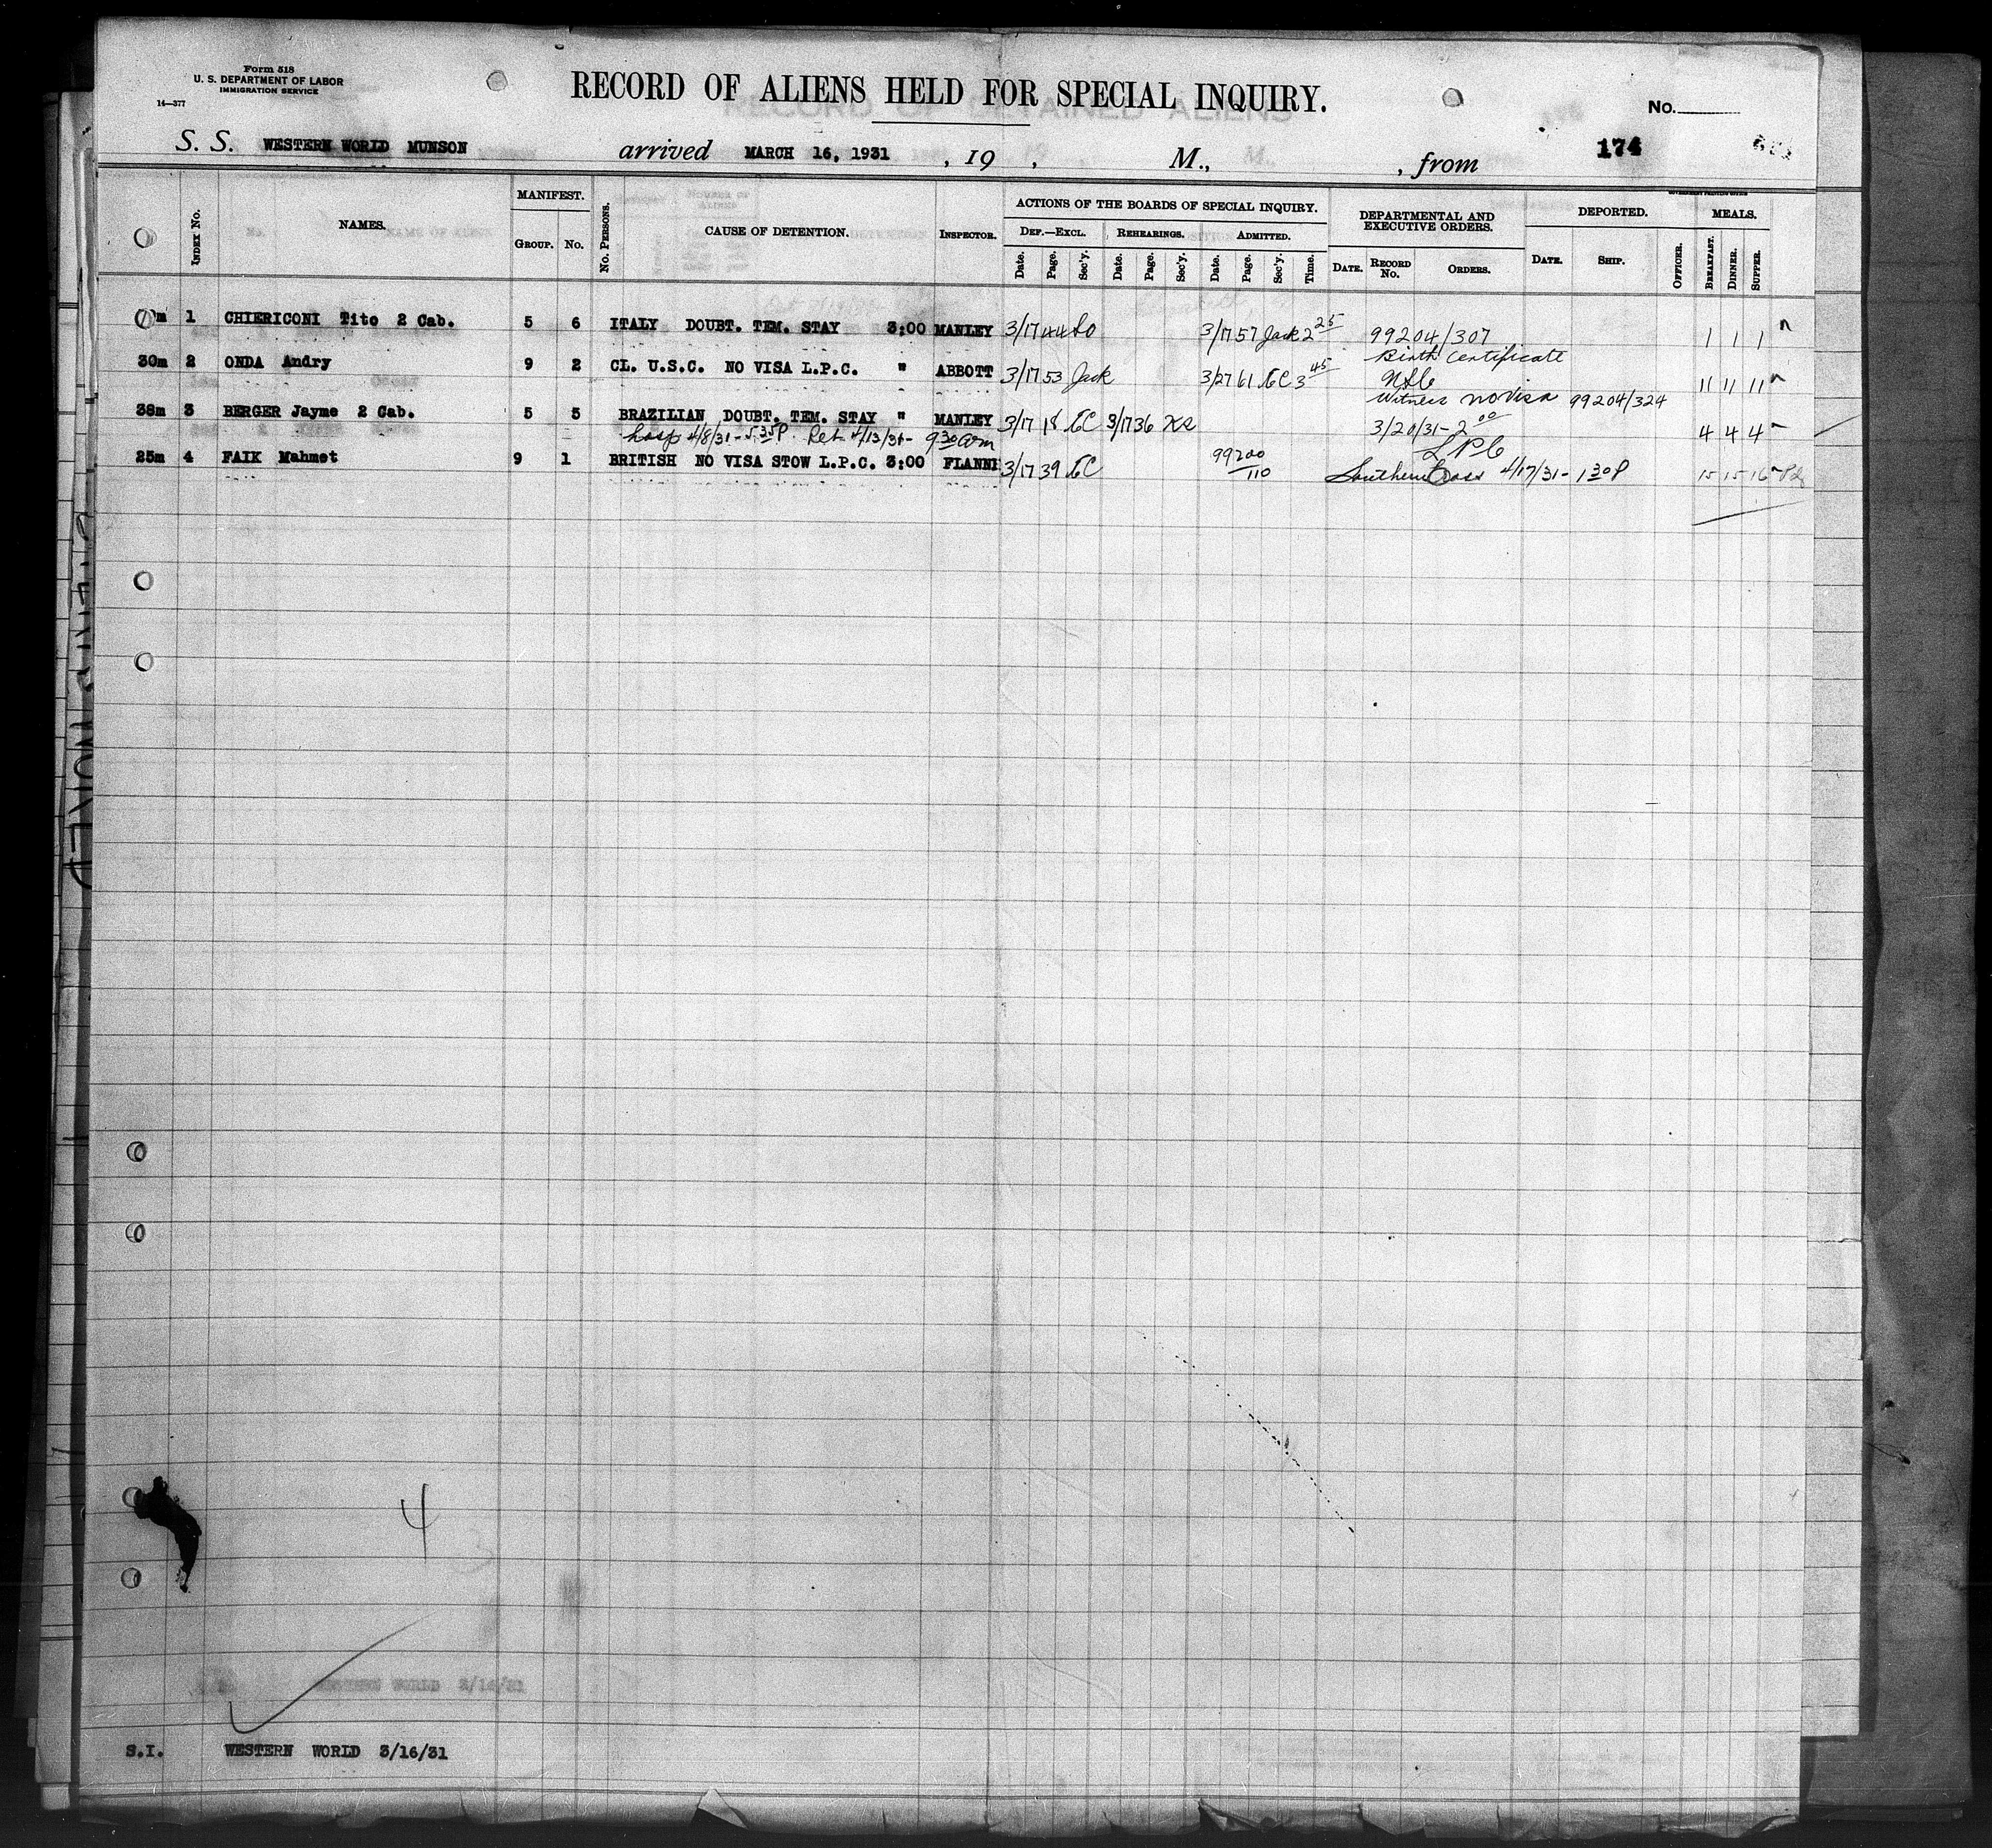 Form 518
U. S. DEPARTMENT OF LABOR
IMMIGRATION SERVICE
14—377
RECORD OF ALIENS HELD FOR SPECIAL INQUIRY.
No.
S. S. WESTERN WORLD MUNSON arrived MARCH 16, 1931 , 19 , M., , from 174
INDEX No. NAMES. MANIFEST. GROUP. No. No. PERSONS. CAUSE OF DETENTION. INSPECTOR. ACTIONS OF THE BOARDS OF SPECIAL INQUIRY. DEF.—EXCL. Date. Page. Sec'y. REHEARINGS. Date. Page. Sec'y. ADMITTED. Date. Page. Sec'y. Time. DEPARTMENTAL AND EXECUTIVE ORDERS. DATE. RECORD No. ORDERS. DEPORTED. DATE. SHIP. OFFICER. MEALS. BREAKFAST. DINNER. SUPPER.
m 1 CHIERICONI Tito 2 Cab. 5 6 ITALY DOUBT. TEM. STAY 3:00 MANLEY 3/17 44 3/17 57 Jack 2 25 99204/307 1 1 1
Birth Certificate
30m 2 ONDA Andry 9 2 CL. U.S.C. NO VISA L.P.C. " ABBOTT 3/17 53 Jack 3/27 61 3 45 11 11 11
Witness no visa 99204/324
38m 3 BERGER Jayme 2 Cab. 5 5 BRAZILIAN DOUBT. TEM. STAY " MANLEY 3/17 18 3/17 36 3/20/31 - 2 00 4 4 4
hosp 4/8/31 - 5 35 P. Ret 4/13/31 - 9 30 am
LPC
25m 4 FAIK Mahmet 9 1 BRITISH NO VISA STOW L.P.C. 3:00 FLANNE 3/17 39 99200/110 Southern Cross 4/17/31 - 1 30 P 15 15 16
4
S.I. WESTERN WORLD 3/16/31